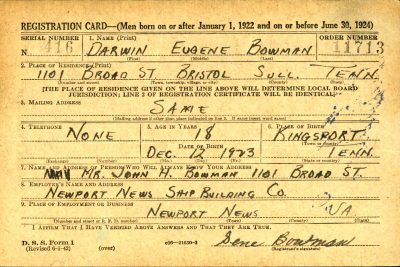 REGISTRATION CARD—(Men born on or after January 1, 1922 and on or before June 30, 1924)
SERIAL NUMBER 1. NAME (Print) ORDER NUMBER
N 416 DARWIN EUGENE BOWMAN 11713
(First) (Middle) (Last)
2. PLACE OF RESIDENCE (Print)
1101 BROAD ST BRISTOL SULL. TENN.
(Number and street) (Town, township, village, or city) (County) (State)
[THE PLACE OF RESIDENCE GIVEN ON THE LINE ABOVE WILL DETERMINE LOCAL BOARD
JURISDICTION; LINE 2 OF REGISTRATION CERTIFICATE WILL BE IDENTICAL]
3. MAILING ADDRESS
SAME
[Mailing address if other than place indicated on line 2. If same insert word same]
4. TELEPHONE 5. AGE IN YEARS 6. PLACE OF BIRTH
NONE 18 KINGSPORT
DATE OF BIRTH
DEC. 17 1923 TENN.
(Exchange) (Number) (Mo.) (Day) (Yr.) (State or country)
7. NAME AND ADDRESS OF PERSON WHO WILL ALWAYS KNOW YOUR ADDRESS
MR. JOHN H. BOWMAN 1101 BROAD ST.
8. EMPLOYER'S NAME AND ADDRESS
NEWPORT NEWS SHIP BUILDING CO.
9. PLACE OF EMPLOYMENT OR BUSINESS
NEWPORT NEWS VA
(Number and street or R. F. D. number) (Town) (County) (State)
I AFFIRM THAT I HAVE VERIFIED ABOVE ANSWERS AND THAT THEY ARE TRUE.
D. S. S. Form 1
(Revised 6-1-42) (over) Gene Bowman
(Registrant's signature)